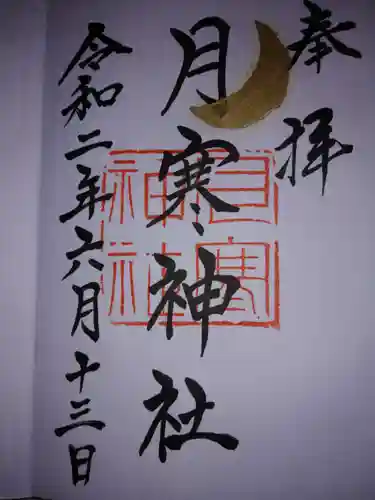 奉拝
月寒神社
令和二年六月十三日
月寒
神社